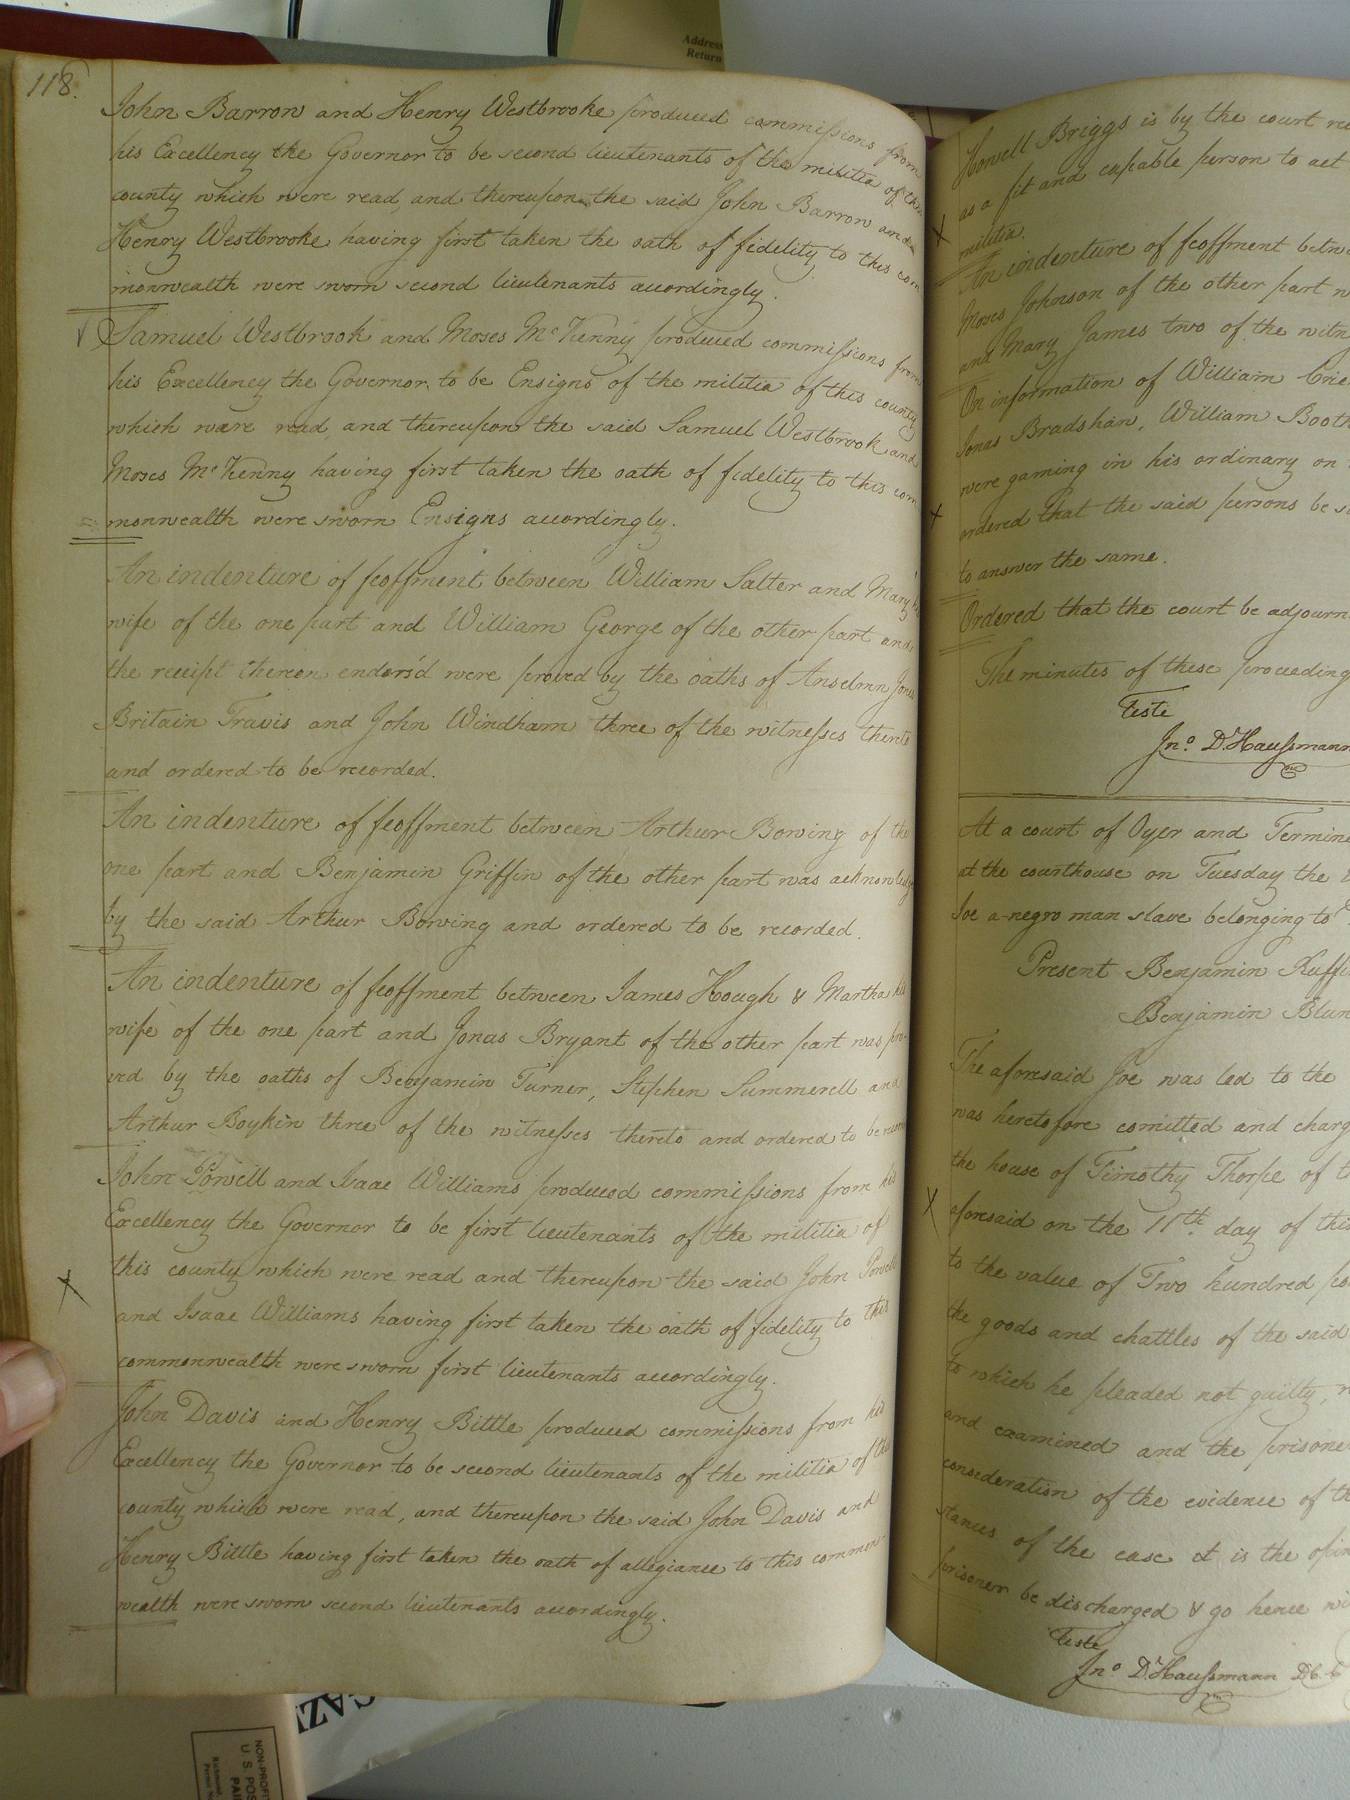 Address
Return
118.
John Barron and Henry Westbrooke produced commissions from
his Excellency the Governor to be second lieutenants of the militia of this
county which were read, and thereupon the said John Barron and
Henry Westbrooke having first taken the oath of fidelity to this com
monwealth were sworn second lieutenants accordingly.
Samuel Westbrook and Moses McKenny produced commissions from
his Excellency the Governor to be Ensigns of the militia of this county
which ware read and thereupon the said Samuel Westbrook and
Moses McKenny having first taken the oath of fidelity to this com
monwealth were sworn Ensigns accordingly.
An indenture of feoffment between William Salter and Mary his
wife of the one part and William George of the other part and
the receipt thereon endors'd were proved by the oaths of Anselmn Jones
Britain Travis and John Windham three of the witnesses thereto
and ordered to be recorded.
An indenture of feoffment between Arthur Bowing of the
one part and Benjamin Griffin of the other part was acknowledg
by the said Arthur Bowing and ordered to be recorded.
An indenture of feoffment between James Hough & Martha his
wife of the one part and Jonas Bryant of the other part was pro-
ved by the oaths of Benjamin Turner, Stephen Summerell and
Arthur Boykin three of the witnesses thereto and ordered to be
John Powell and Isaac Williams produced commissions from his
Excellency the Governor to be first lieutenants of the militia of
this county which were read and thereupon the said John Powell
and Isaac Williams having first taken the oath of fidelity to this
commonwealth were sworn first lieutenants accordingly.
John Davis and Henry Bittle produced commissions from his
Excellency the Governor to be second lieutenants of the militia of this
county which were read, and thereupon the said John Davis and
Henry Bittle having first taken the oath of allegiance to this common-
wealth were sworn second lieutenants accordingly.
Howell Briggs is by the court
as a fit and capable person to act
militia.
An indenture of feoffment
Moses Johnson of the other part
and Mary James two of the
On information of William
Jonas Bradshaw, William Booth
were gaming in his ordinary on
ordered that the said persons be
to answer the same.
Ordered that the court be
The minutes of these
Teste
Jno. D. Haussmann
At a court of Oyer and
at the courthouse on Tuesday the
Joe a negro man slave belonging to
Present Benjamin
Benjamin
The aforesaid Joe was led to the
was heretofore comitted and
the house of Timothy Thorpe of
aforesaid on the 11th. day of
to the value of Two hundred
the goods and chattles of the said
to which he pleaded not guilty,
and examined and the
consideration of the evidence of
stances of the case it is the
prisoner be discharged & go hence
Teste
Jno D. Haussmann D.C.C
NON-PROFIT
U. S. POS
PAI